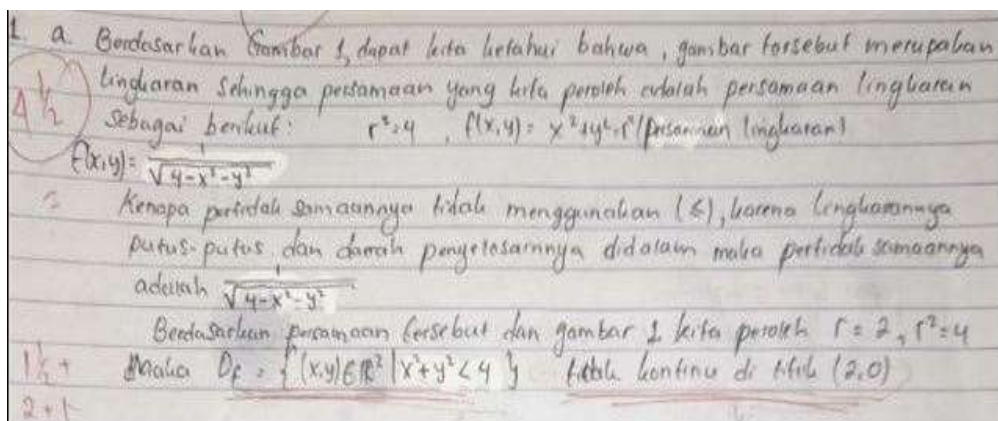 1. a. Berdasarkan Gambar 1, dapat kita ketahui bahwa, gambar tersebut merupakan
4 1/2 lingkaran Sehingga persamaan yang kita peroleh adalah persamaan lingkaran
sebagai berikut: r²=4, f(x,y) = x²+y²=r² (persamaan lingkaran)
f(x,y) = 1/√(4-x²-y²)
Kenapa pertidak samaannya tidak menggunakan (≤), karena lingkarannya
putus-putus dan daerah penyelesaiannya didalam maka pertidak samaannya
adalah 1/√(4-x²-y²)
Berdasarkan persamaan tersebut dan gambar 1 kita peroleh r = 2, r² = 4
1 1/2 + Maka Df = {(x,y) ∈ ℝ² | x²+y² < 4} tidak kontinu di titik (2,0)
2 + 1